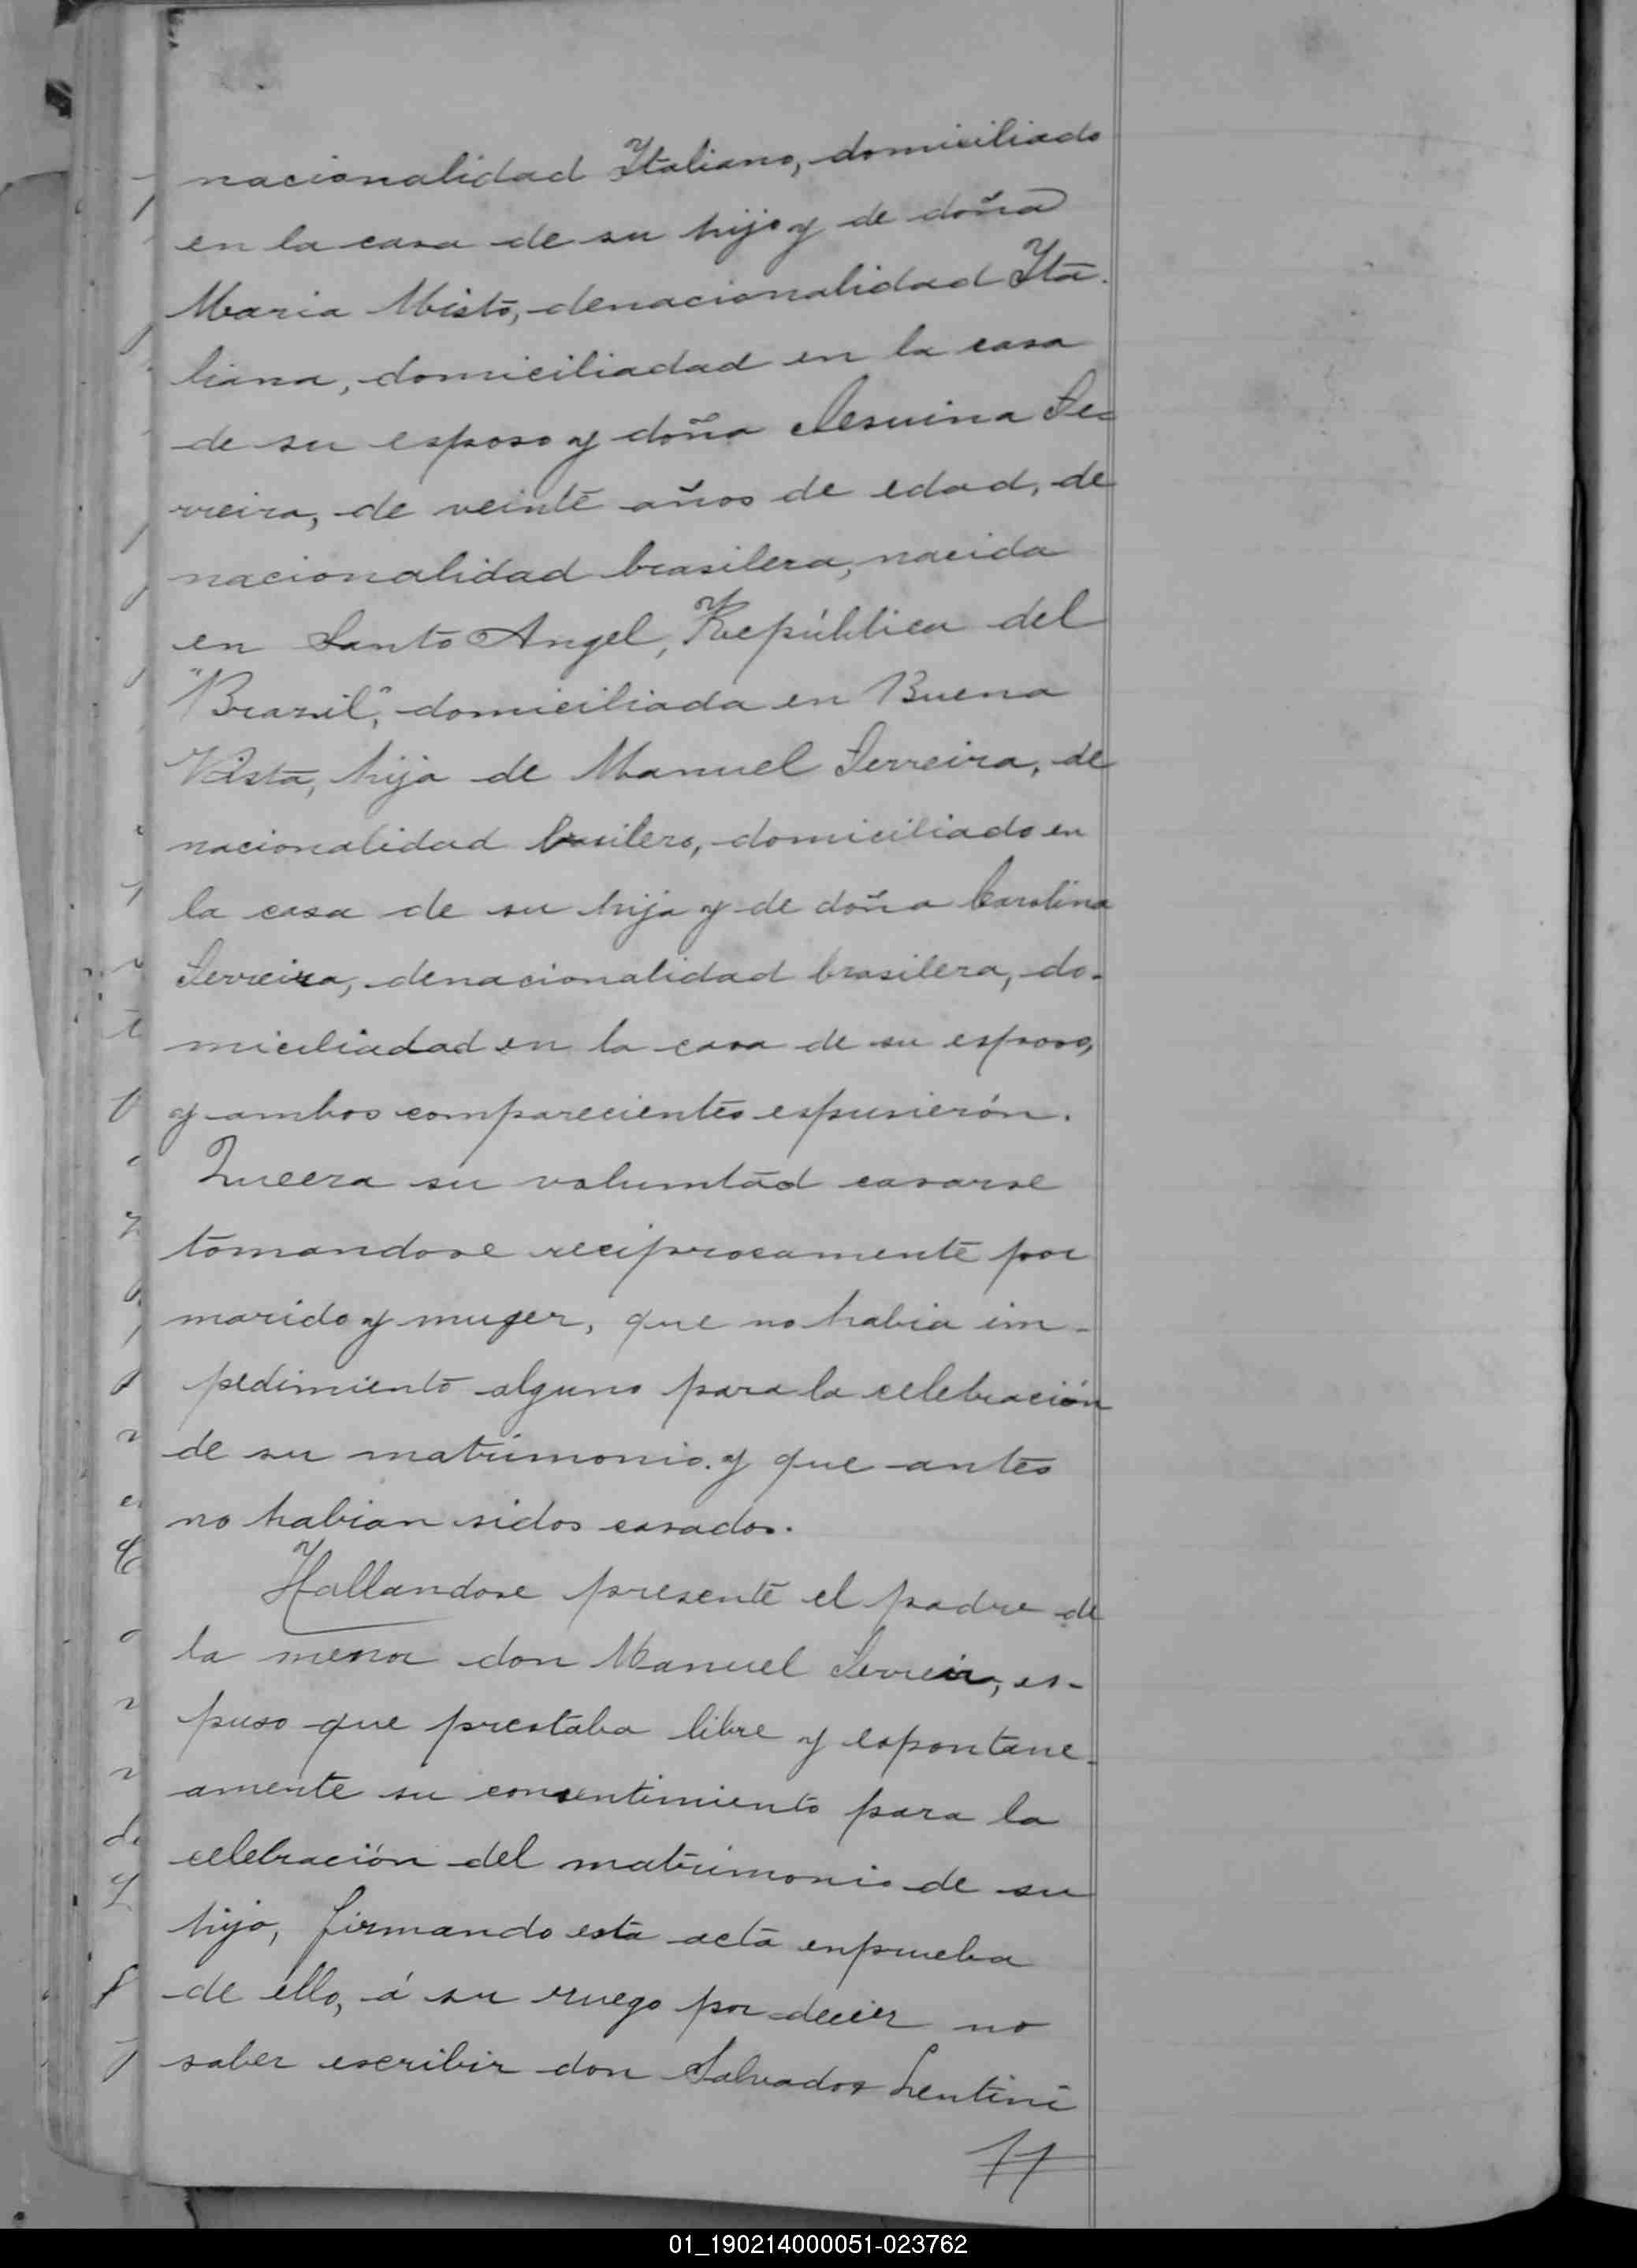 nacionalidad Italiano, domiciliado
en la casa de su hijo y de doña
Maria Misto, denacionalidad Ita-
liana, domiciliadad en la casa
de su esposo y doña Jesuina Fe=
rreira, de veinte años de edad, de
nacionalidad brasilera, nacida
en Santo Angel, República del
"Brazil", domiciliada en Buena
Vista, hija de Manuel Ferreira, de
nacionalidad brasilero, domiciliado en
la casa de su hija y de doña Carolina
Ferreira, denacionalidad brasilera, do-
miciliadad en la casa de su esposo,
y ambos comparecientes espusierón.
Queera su voluntad casarse
tomandose reciprocamente por
marido y muger, que no habia im-
pedimiento alguno para la celebración
de su matrimonio. y que antes
no habian sidos casados.
Hallandose presente el padre de
la menor don Manuel Ferreira, es-
puso que prestaba libre y espontane-
amente su consentimiento para la
celebración del matrimonio de su
hija, firmando esta acta enprueba
de ello, á su ruego por decir no
saber escribir don Salvador Lentini
01_190214000051-023762